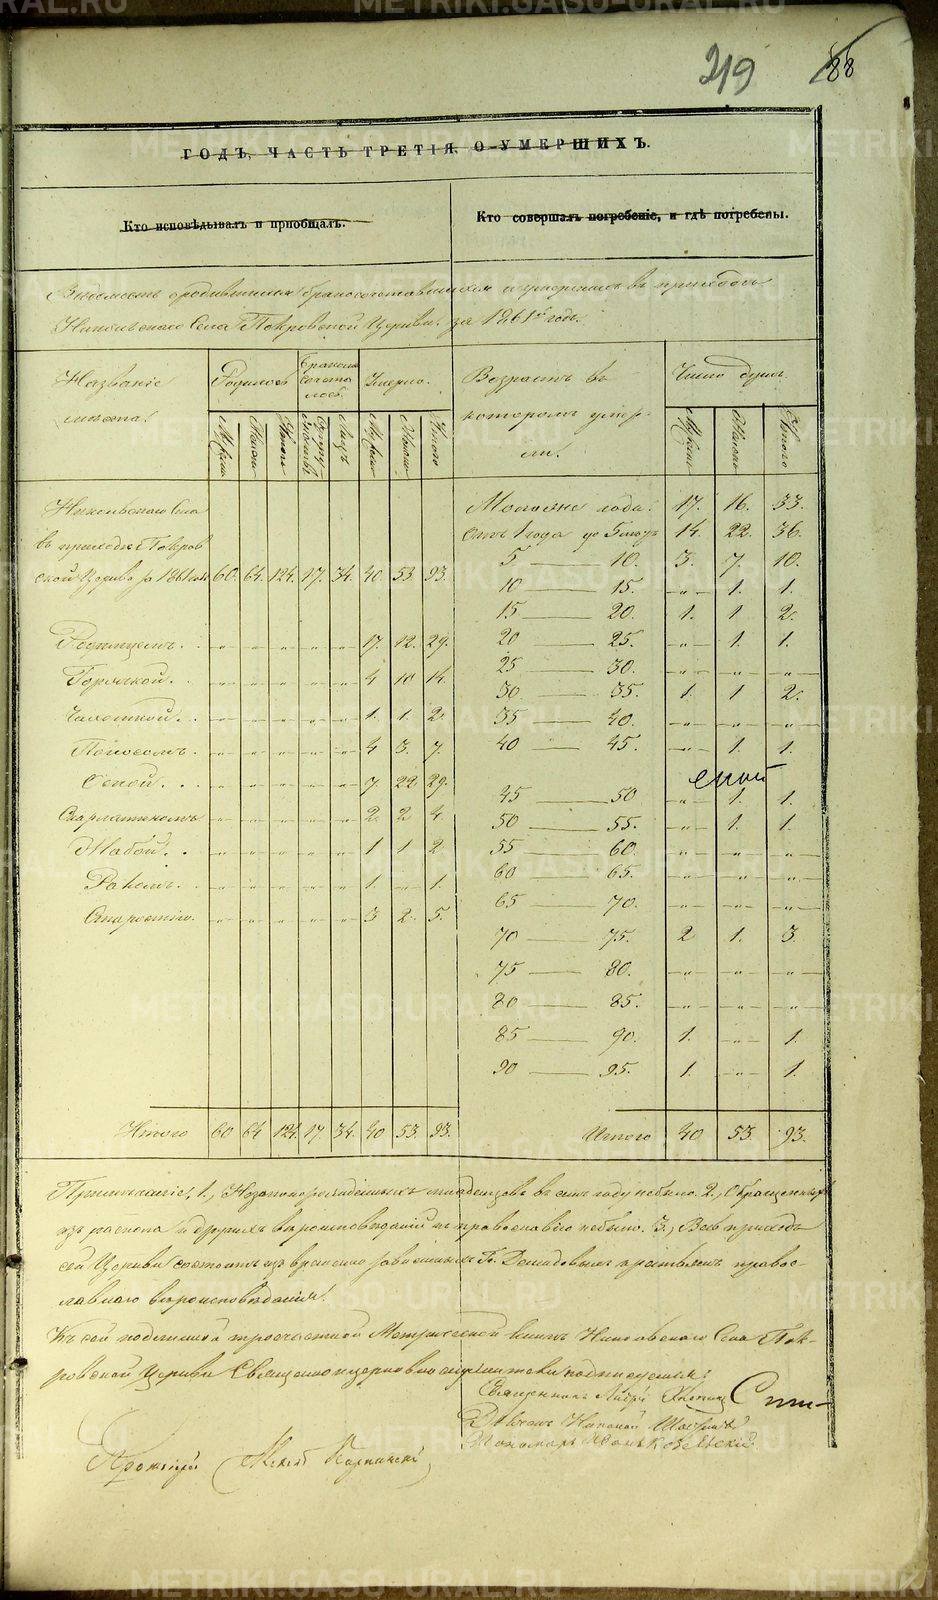 219 88
ГОДЪ, ЧАСТЬ ТРЕТІЯ, О УМЕРШИХЪ.
Кто исповѣдывалъ и пріобщалъ. Кто совершалъ погребеніе, и гдѣ погребены.
Вѣдомость о родившихся бракосочетавшихся и умершихъ въ приходѣ
Никольскаго Села Покровской Церкви за 1861й годъ.
Названіе мѣста. Родилось Бракосочеталось. Умерло. Возрастъ въ которомъ умерли. Число душъ.
Мужск. Женск. Итого Супружествъ Лицъ Мужск. Женск. Итого Мужск. Женск. Итого
Никольскаго Села
въ приходѣ Покров
ской Церкви за 1861 годъ 60. 64. 124. 17. 34. 40 53. 93.
Родимцемъ. „ „ „ „ „ 17. 12. 29.
Горячкой. „ „ „ „ „ 4 10 14.
Чахоткой. „ „ „ „ „ 1. 1. 2.
Поносомъ. „ „ „ „ „ 4 3. 7.
Оспой. „ „ „ „ „ 7 22 29.
Скарлатиномъ „ „ „ „ „ 2. 2 4
Жабой. „ „ „ „ „ 1 1 2
Ракомъ. „ „ „ „ „ 1. „ 1.
Старостію. „ „ „ „ „ 3 2. 5.
Итого 60 64 124. 17. 34. 40 53. 93.
Моложе года. 17. 16. 33.
Отъ 1 года до 5 лѣтъ 14. 22. 36.
5 — 10. 3. 7. 10.
10 — 15. „ 1. 1.
15 — 20. 1. 1 2.
20 — 25. „ 1. 1.
25 — 30. „ „ „
30 — 35. 1. 1 2.
35 — 40. „ „ „
40 — 45. „ 1. 1.
45 — 50 „ 1. 1.
50 — 55. „ 1. 1.
55 — 60. „ „ „
60 — 65. „ „ „
65 — 70. „ „ „
70 — 75. 2 1. 3.
75 — 80. „ „ „
80 — 85. „ „ „
85 — 90. 1. „ 1.
90 — 95. 1. „ 1.
Итого 40 53. 93.
Примѣчаніе, 1., Незаконорожденныхъ младенцевъ въ семъ году небыло. 2., Обращенныхъ
изъ раскола и другихъ вѣроисповѣданій къ православію небыло. 3., Весь приходъ
сей Церкви состоитъ изъ временно завод. Г. Демидовыхъ крестьянъ православ-
лавнаго вѣроисповѣданія.
Къ сей подлинной троечастной Метрической книгѣ Никольскаго Села Пок-
ровской Церкви Священноцерковнослужители подписуемся:
Священникъ
Діаконъ
Пономарь
Протоіерей
METRIKI.GASO-URAL.RU